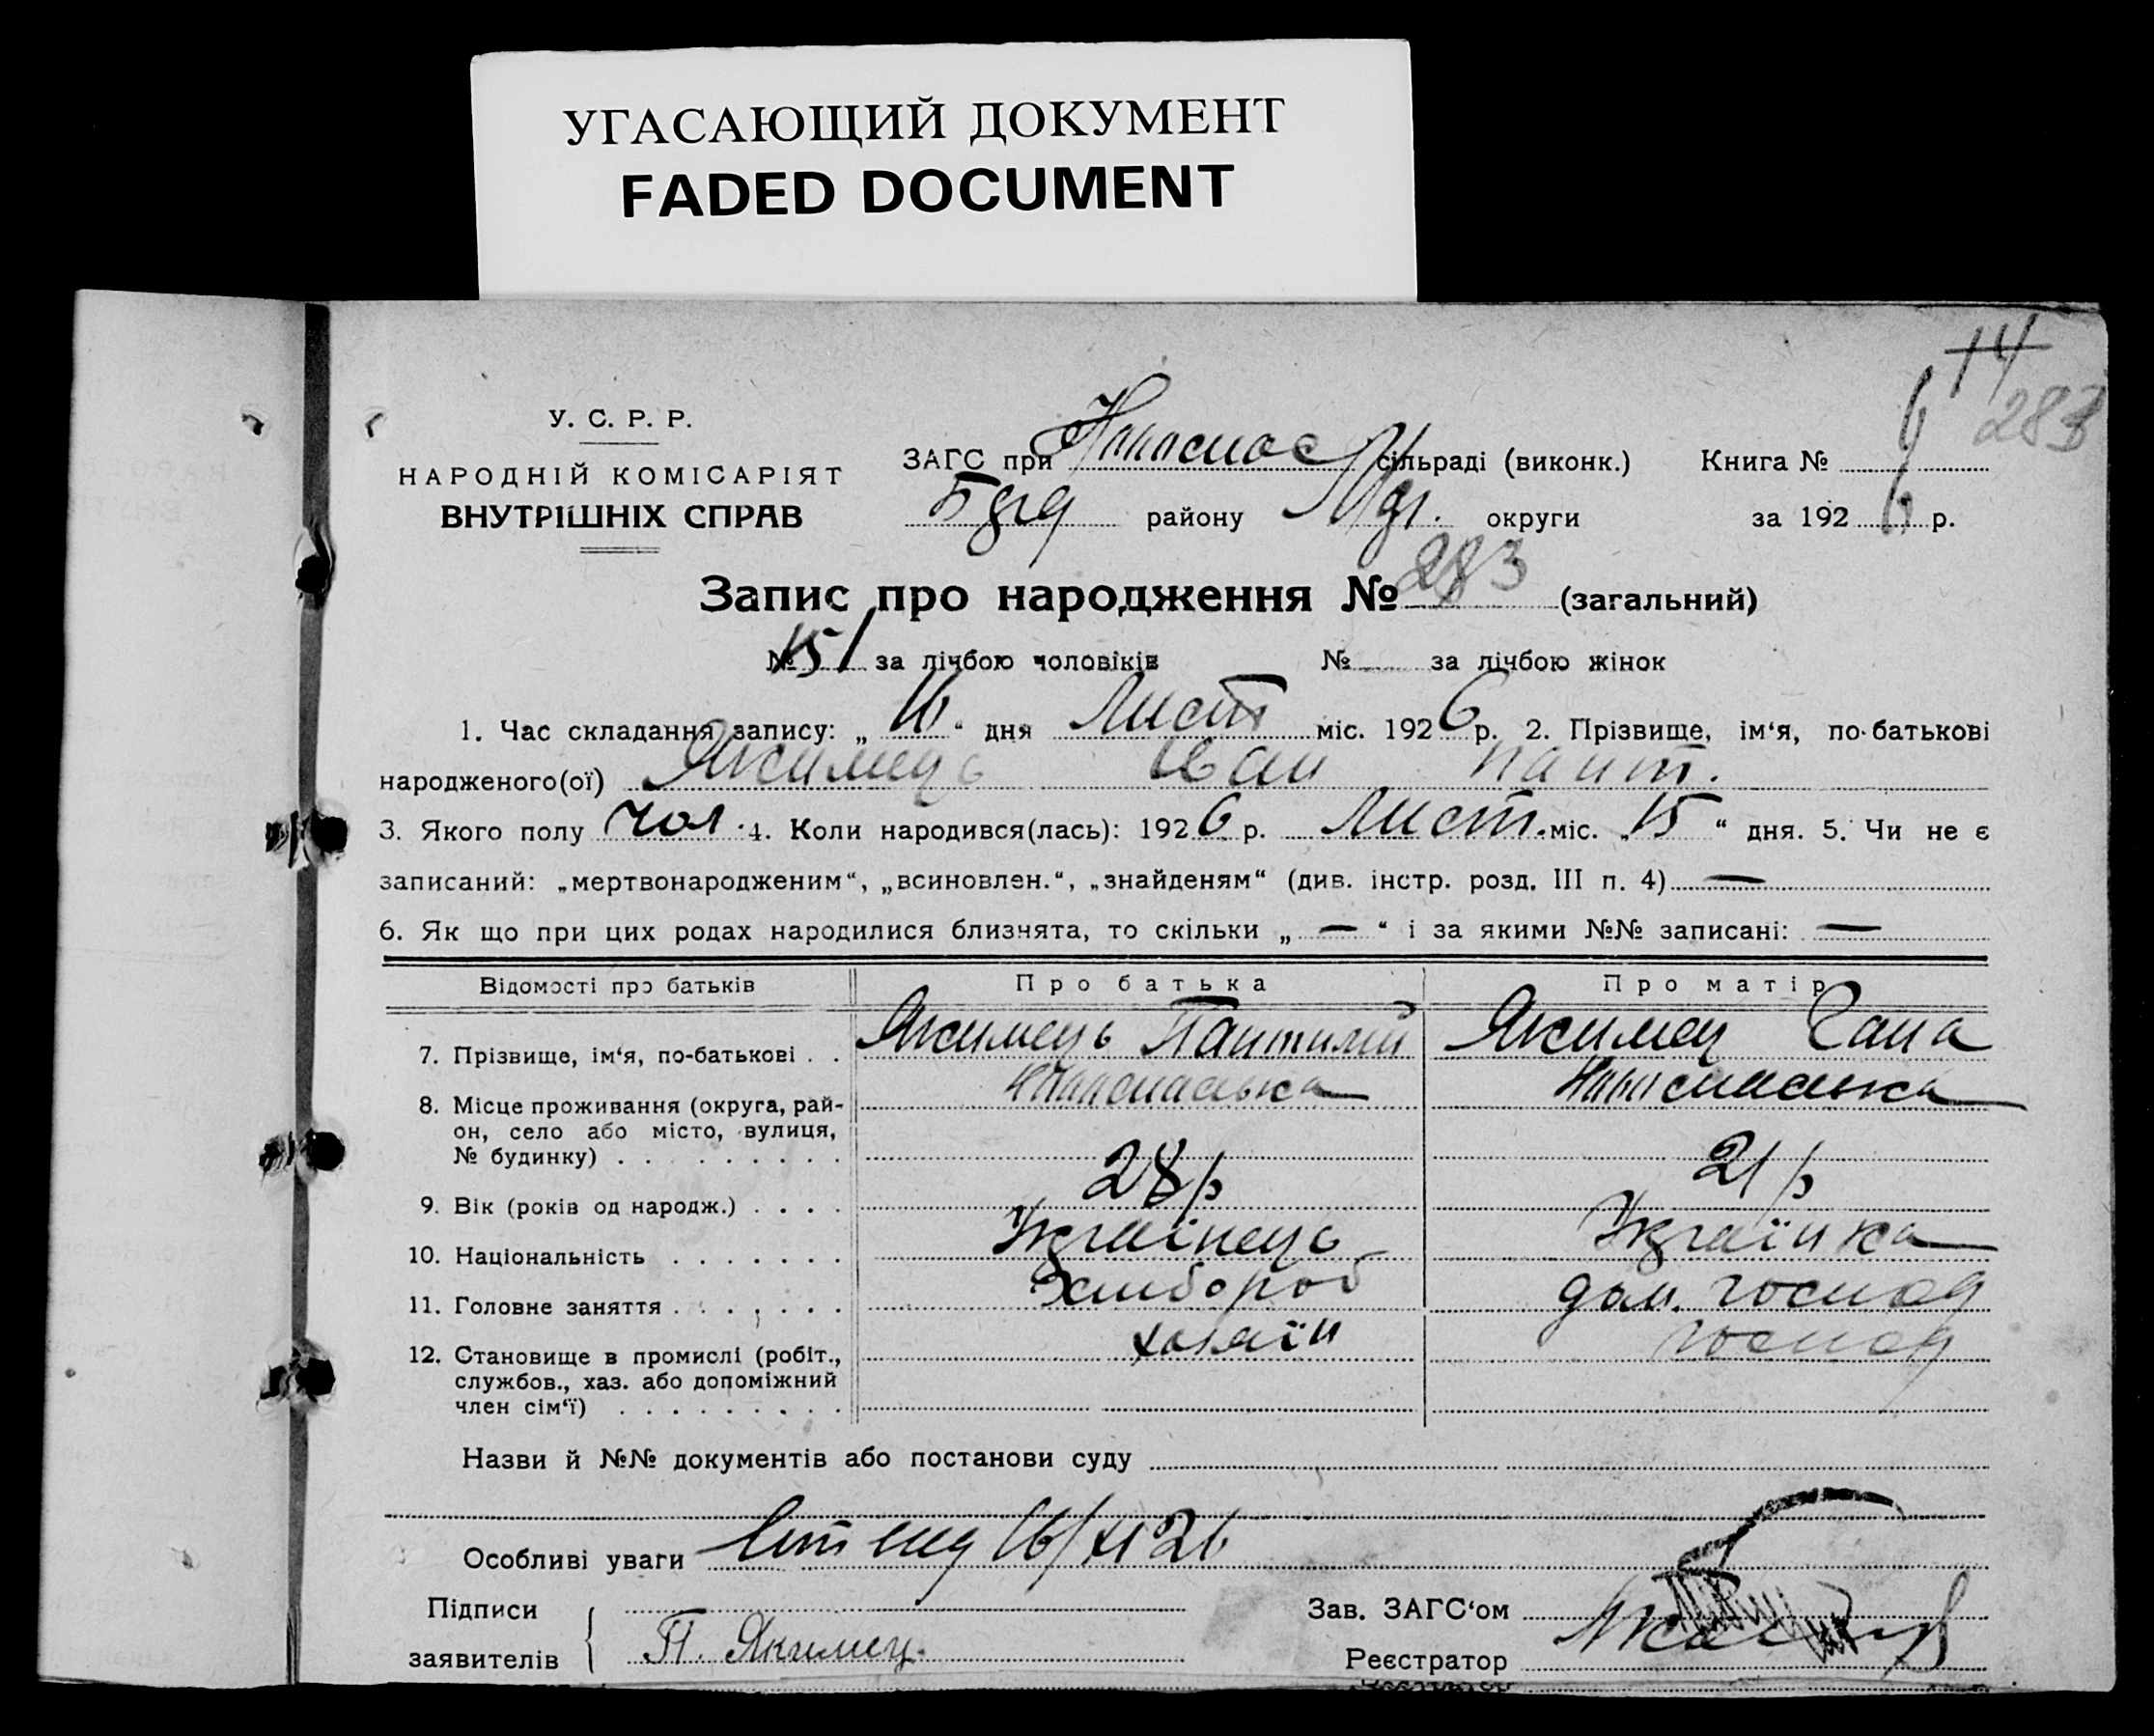 УГАСАЮЩИЙ ДОКУМЕНТ
FADED DOCUMENT
14
283
У. С. Р. Р.
НАРОДНІЙ КОМІСАРІЯТ
ВНУТРІШНІХ СПРАВ
ЗАГС при сільраді (виконк.) Книга №
району округи за 1926 р.
Запис про народження № 283 (загальний)
№ 151 за лічбою чоловіків № за лічбою жінок
1. Час складання запису: „ 16 “ дня Лист міс. 1926 р. 2. Прізвище, ім‘я, по-батькові
народженого(ої) Якимець Іван Пант.
3. Якого полу чол. 4. Коли народився(лась): 1926 р. Лист. міс. „ 15 “ дня. 5. Чи не є
записаний: „мертвонародженим“, „всиновлен.“, „знайденям“ (див. інстр. розд. III п. 4) —
6. Як що при цих родах народилися близнята, то скільки „ — “ і за якими №№ записані: —
Відомості про батьків Про батька Про матір
7. Прізвище, ім‘я, по-батькові . . Якимець Пантилій Якимец Гана
8. Місце проживання (округа, рай-
он, село або місто, вулиця,
№ будинку) . . . . . . . . .
9. Вік (років од народж.) . . . . 28 р 21 р
10. Національність . . . . . . . Українець Українка
11. Головне заняття . . . . . . . Хлибороб дом. господ
12. Становище в промислі (робіт., хазяїн господ
службов., хаз. або допоміжний
член сім‘ї) . . . . . . . . .
Назви й №№ документів або постанови суду
Особливі уваги 16/XI 26
Підписи
заявителів П. Якимец.
Зав. ЗАГС‘ом
Реєстратор